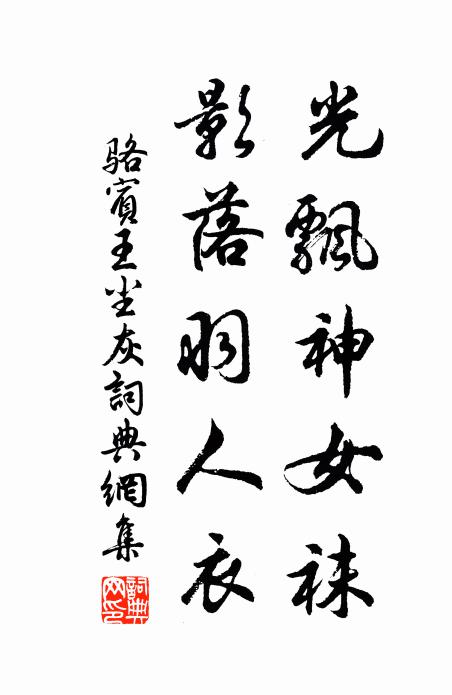 光飄神女袜
影落羽人衣
駱賓王尘灰詞典網集
詞典网印